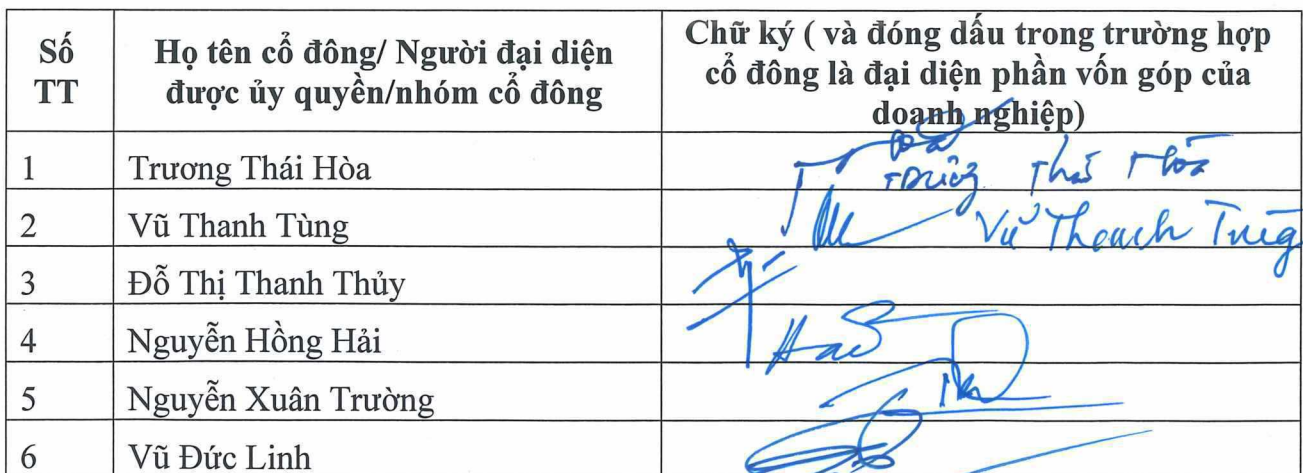 Số TT
Họ tên cổ đông/ Người đại diện được ủy quyền/nhóm cổ đông
Chữ ký ( và đóng dấu trong trường hợp cổ đông là đại diện phần vốn góp của doanh nghiệp)
1 Trương Thái Hòa Trương Thái Hòa
2 Vũ Thanh Tùng Vũ Thanh Tùng
3 Đỗ Thị Thanh Thủy
4 Nguyễn Hồng Hải
5 Nguyễn Xuân Trường
6 Vũ Đức Linh